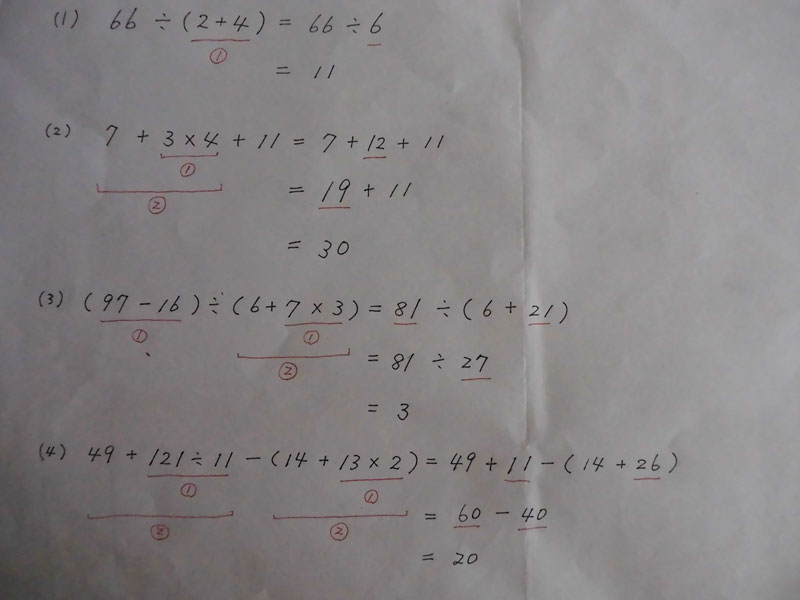 (1) 66 ÷ (2 + 4) = 66 ÷ 6
①
= 11
(2) 7 + 3 × 4 + 11 = 7 + 12 + 11
①
② = 19 + 11
= 30
(3) (97 - 16) ÷ (6 + 7 × 3) = 81 ÷ (6 + 21)
① ①
② = 81 ÷ 27
= 3
(4) 49 + 121 ÷ 11 - (14 + 13 × 2) = 49 + 11 - (14 + 26)
① ①
② ② = 60 - 40
= 20